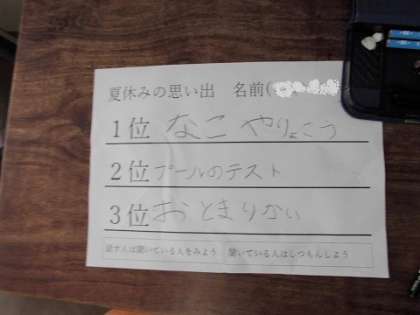 夏休みの思い出 名前(
1位 なこ やりょこう
2位 プールのテスト
3位 おとまりかい
話す人は聞いている人をみよう 聞いている人はしつもんしよう